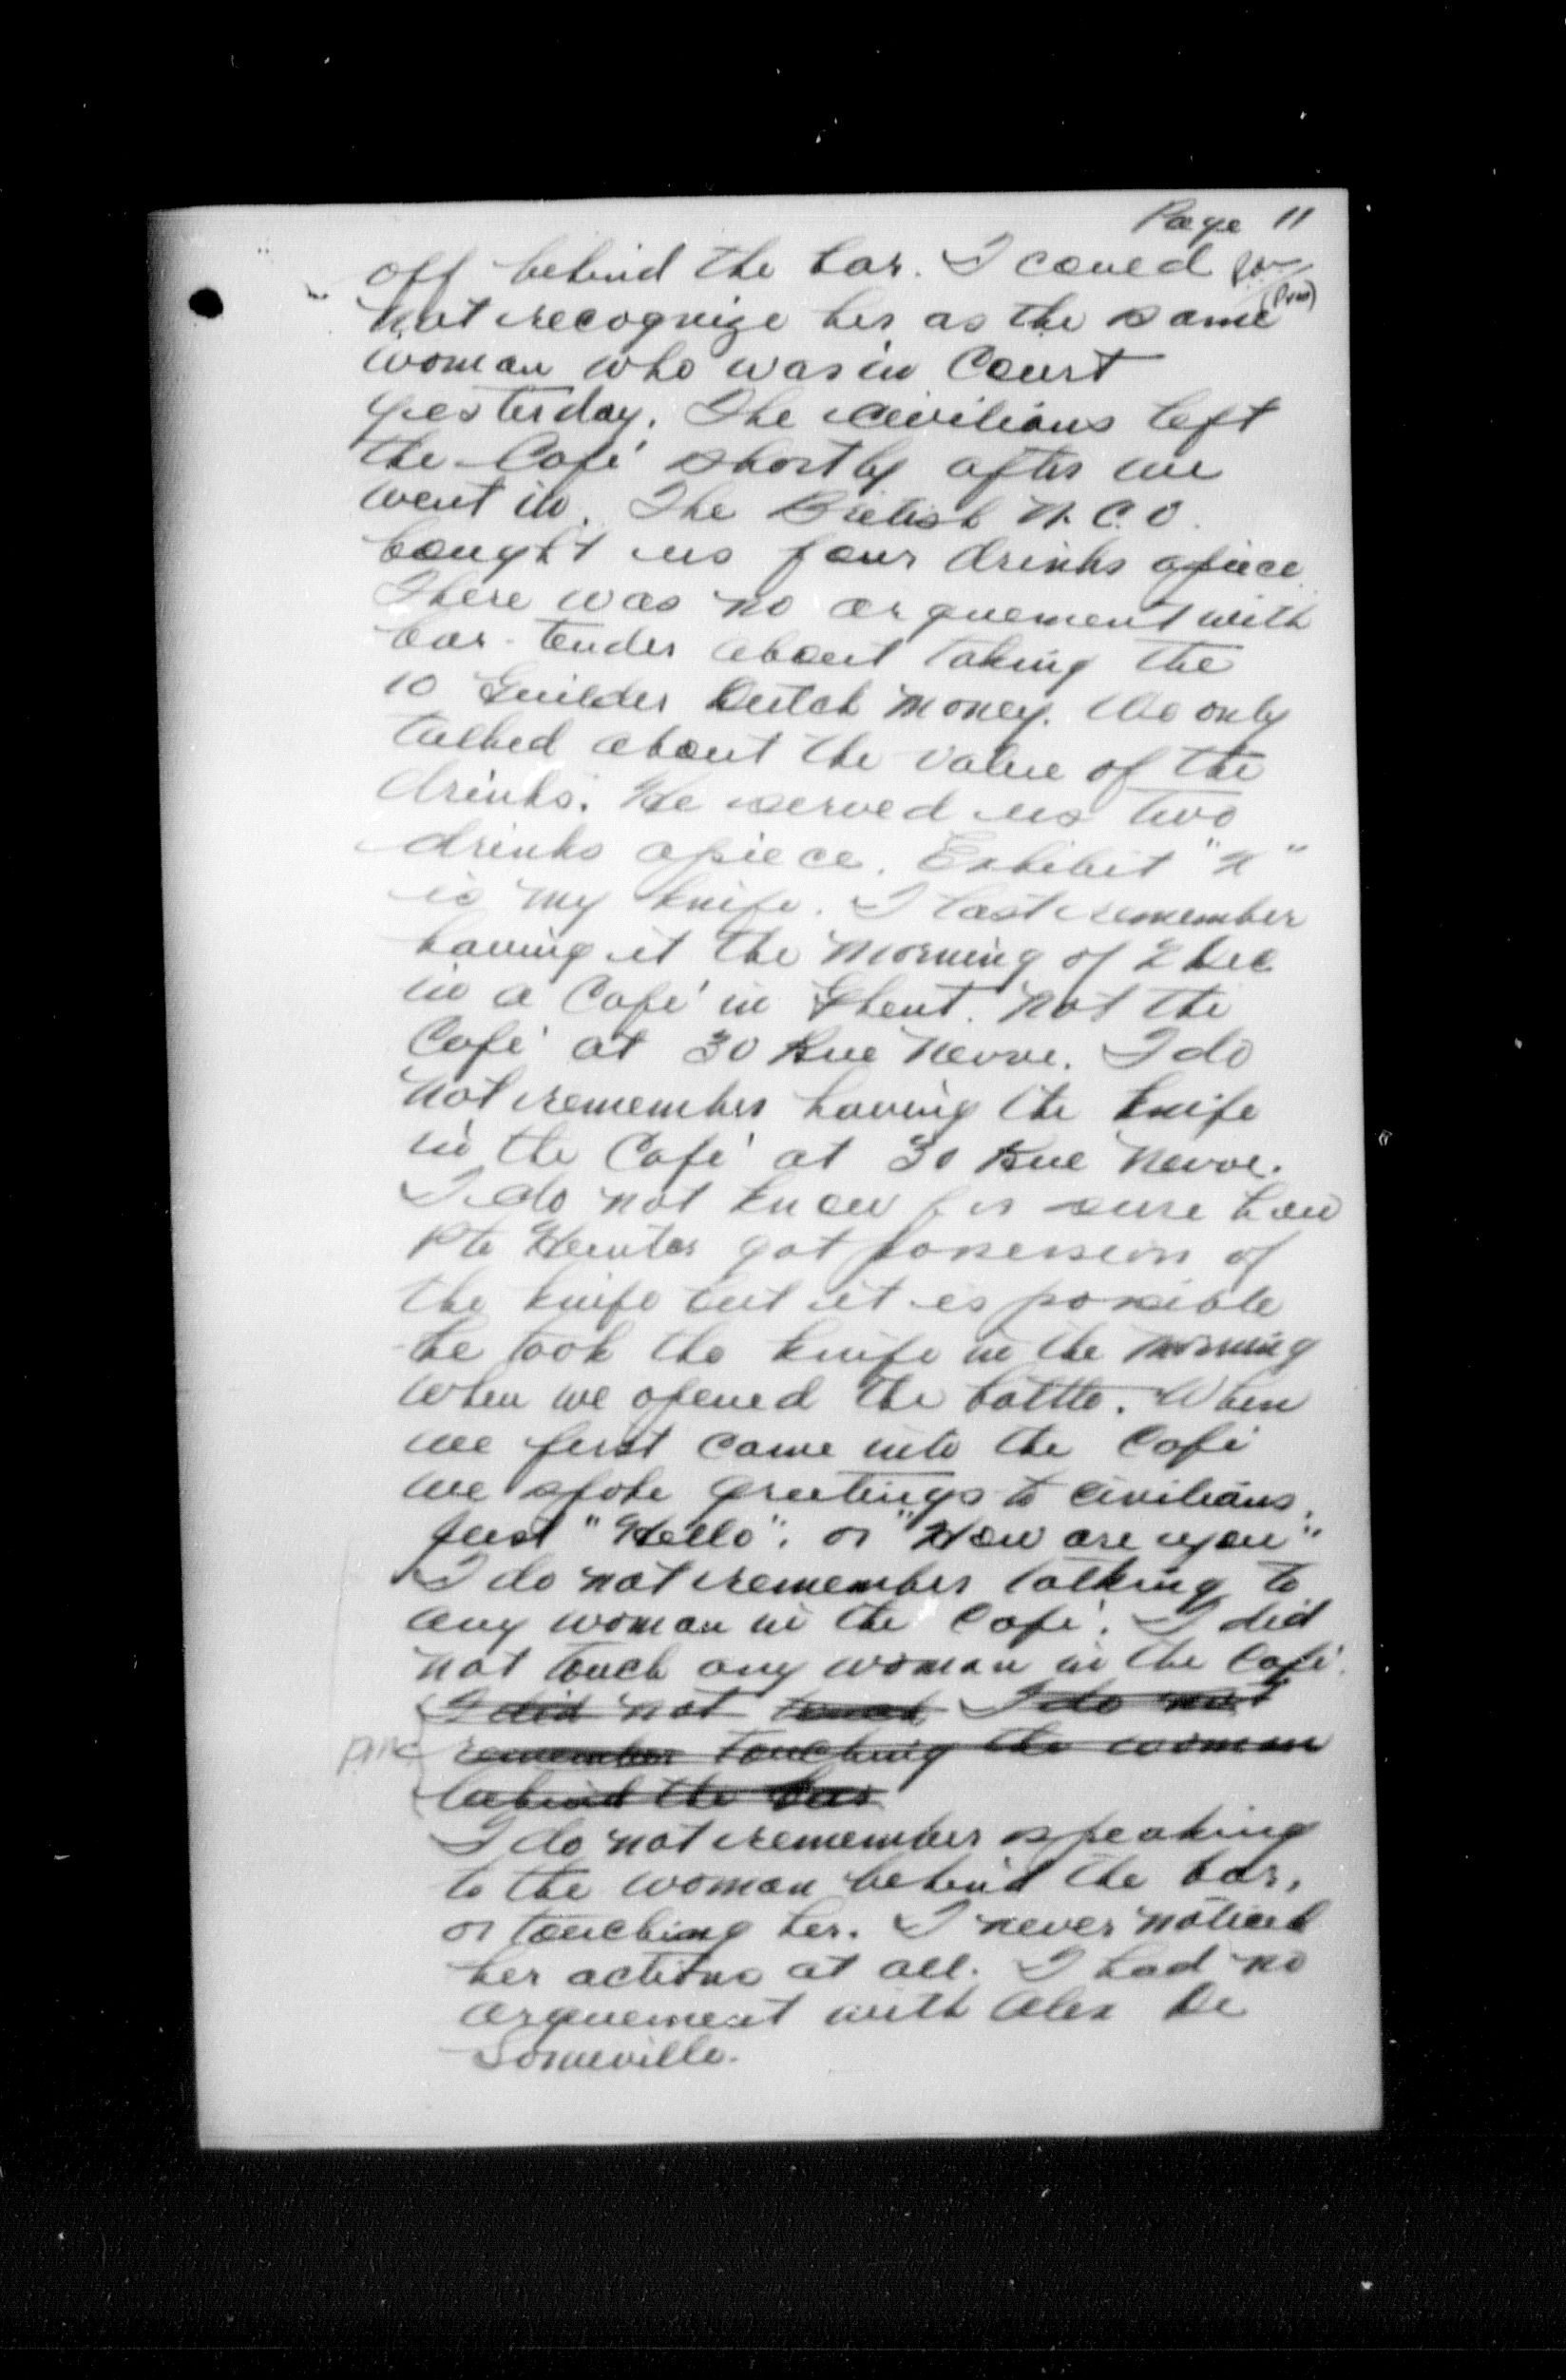 Page 11
off behind the bar. I could
not recognize her as the same
(Pres)
woman who was in Court
yesterday. The civilians left
the Café shortly after we
went in. The British N.C.O.
bought us four drinks apiece.
There was no arguement with
bar-tender about taking the
10 Guilder Dutch money. We only
talked about the value of the
drinks. He served us two
drinks apiece. Exhibit "K"
is my knife. I last remember
having it the morning of 2 Dec
in a Café in Ghent. Not the
Café at 30 Rue Neuve. I do
not remember having the knife
in the Café at 30 Rue Neuve.
I do not know for sure how
Pte Hunter got possession of
the knife but it is possible
he took the knife in the morning
when we opened the bottle. When
we first came into the Café
we spoke greetings to civilians,
just "Hello", or "How are you"
I do not remember talking to
any woman in the Café. I did
not touch any woman in the Café.
I did not touch I do not
remember touching the woman
behind the bar
I do not remember speaking
to the woman behind the bar,
or touching her. I never noticed
her actions at all. I had no
arguement with Alex De
Someville.